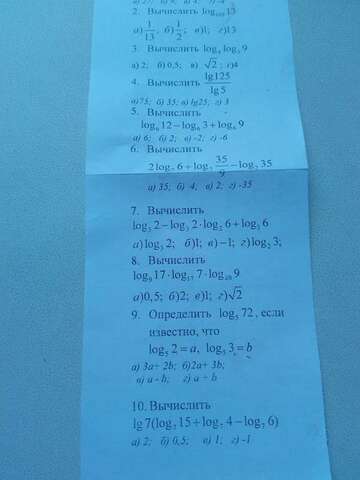 2. Вычислить log₁₆₉ 13
а) 1/13 б) 1/2; в)1; г)13
3. Вычислить log₄ log₃ 9
а) 2; б) 0,5; в) √2 ; г)4
4. Вычислить lg125/lg5
а)75; б) 35; в) lg25; г) 3
5. Вычислить
log₆ 12 − log₆ 3 + log₆ 9
а) 6; б) 2; в) -2, г) -6
6. Вычислить
2log₇ 6 + log₇ 35/9 − log₇ 35
а) 35; б) 4, в) 2, г) -35
7. Вычислить
log₃ 2 − log₃ 2·log₂ 6 + log₃ 6
а) log₃ 2; б)1; в) −1; г) log₂ 3;
8. Вычислить
log₉ 17·log₁₇ 7·log₄₉ 9
а)0,5; б)2; в)1; г)√2
9. Определить log₅ 72, если
известно, что
log₅ 2 = a, log₅ 3 = b
а) 3a+ 2b; б)2a+ 3b;
в) a - b; г) a + b
10. Вычислить
lg 7(log₇ 15 + log₇ 4 − log₇ 6)
а) 2; б) 0,5; в) 1, г) -1